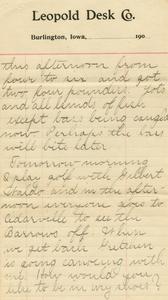 Leopold Desk Co.
Burlington, Iowa, 190
this afternoon from
four to six and got
two four pounders. Lots
and all kinds of fish
except bass being caught
now. Perhaps the bass
will bite later
Tomorrow morning
I play golf with Gilbert
and in the after-
noon everyone goes to
Cedarville to see the
Barrows off. When
we get back
is going canoeing with
me. How would you
like to be in my shoes?